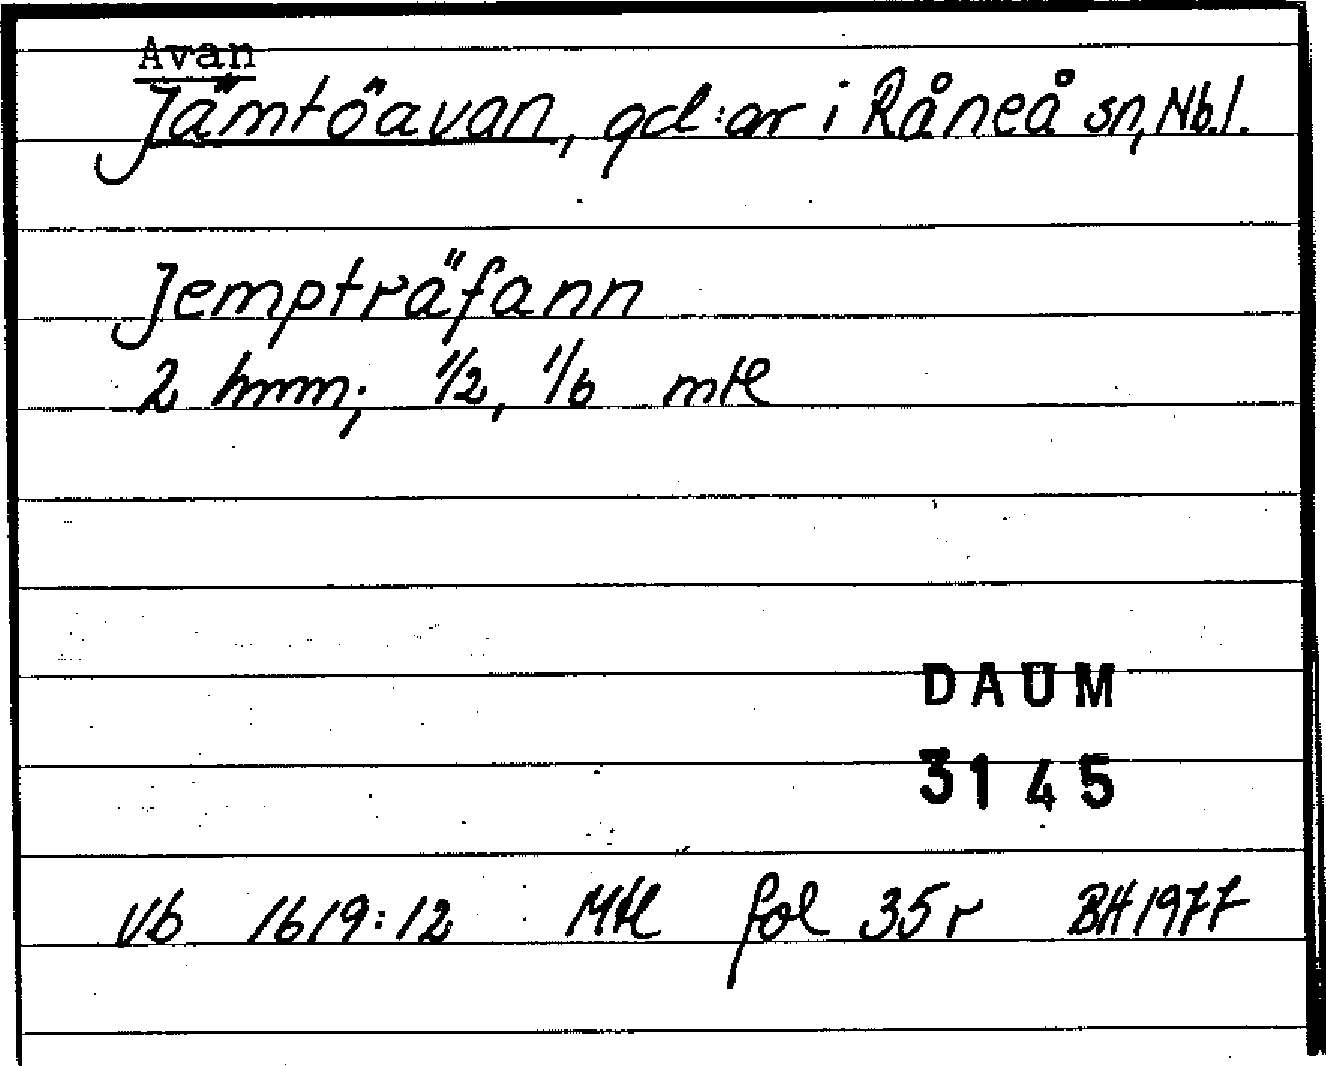 Avan
Jämtöavan, gd:ar i Råneå sn, Nb.l.
Jempträfann
2 hmm; 1/2, 1/6 mtl
DAUM
3145
Vb 1619:12 Mtl fol 35 r BH 1977